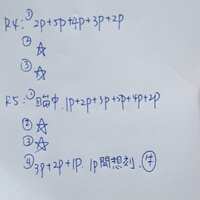 R4: ① 2p+5p+4p+3p+2p
② ☆
③ ☆
R5: ① 1p+2p+3p+5p+4p+2p
② ☆
③ ☆
④ 3p+2p+1p. 1p 問想刻. ⑦